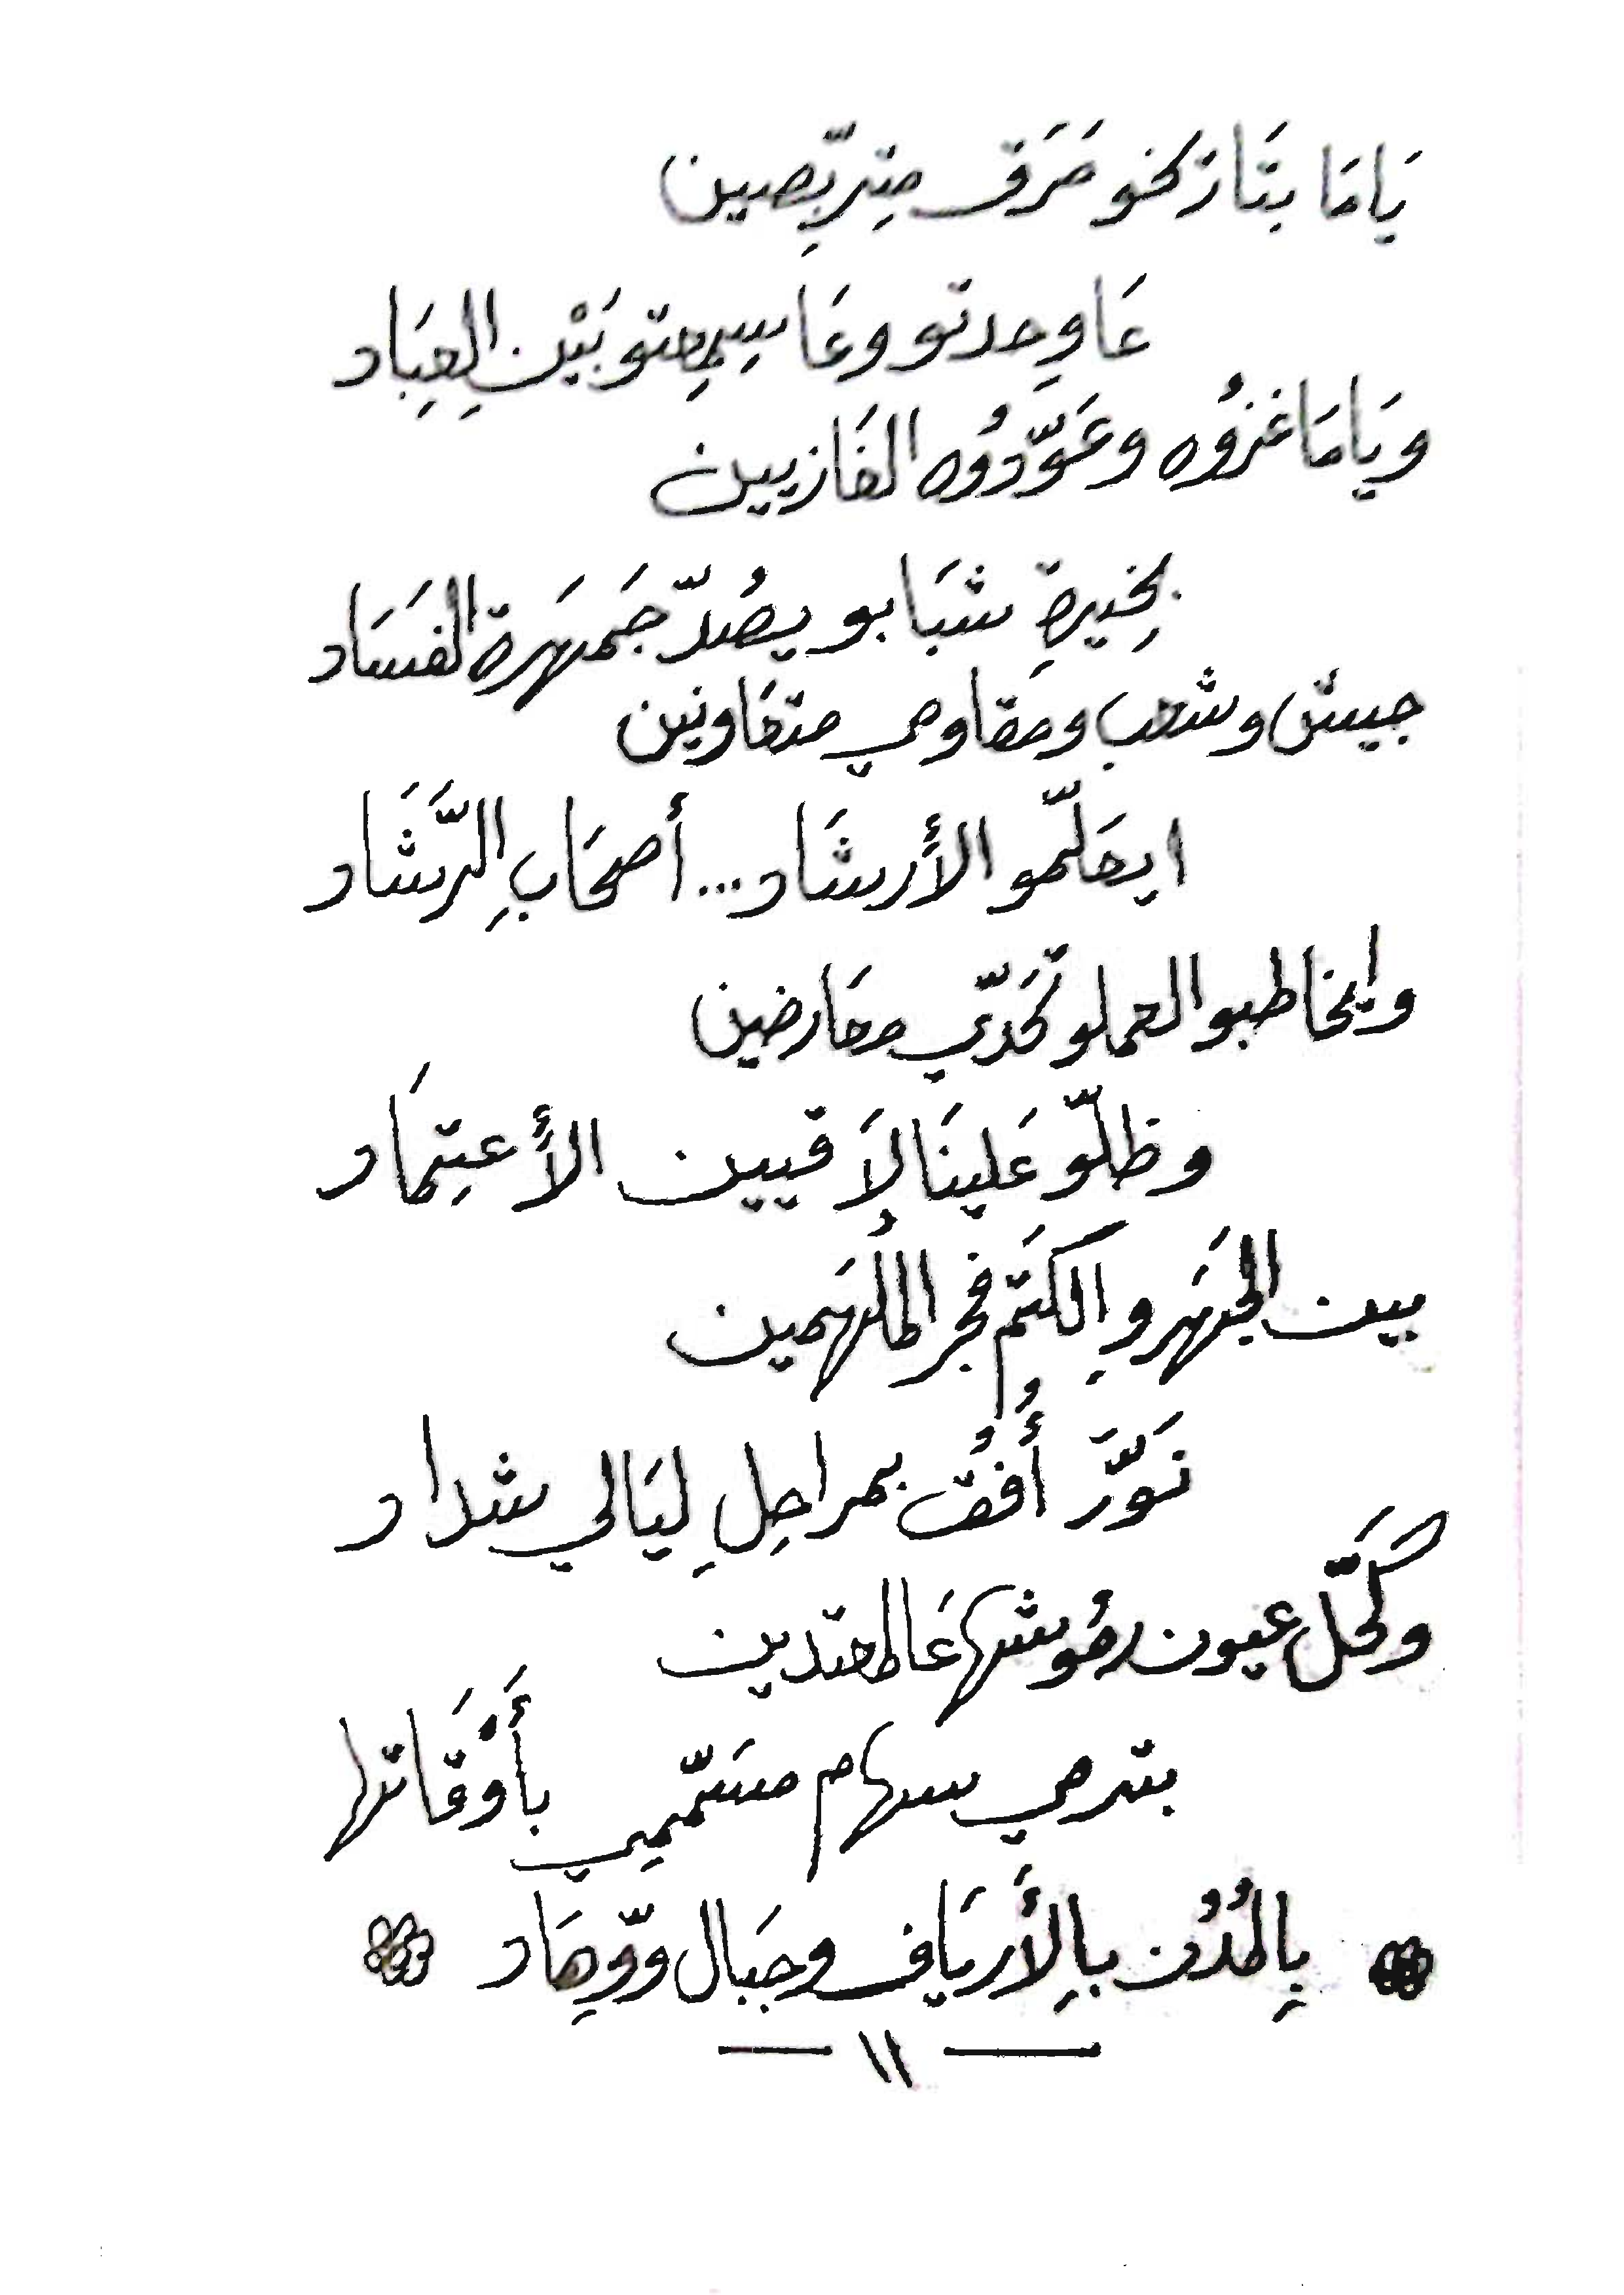 يَامَا بتَارَكخو مَرَق متِربّصِين
عَا وِحدتو وعَا سِمِعتو بَيْن العِبَاد
ويَامَا غزُوه وعَوّدُوه الغَازيين
بخِيرةِ شبَابو يصُدّ جَمهَرة الفَسَاد
جيش وشعب ومقَاومي متعَاونين
ايعَلّمو الأرشَاد... أصحَابِ الرَّشَاد
وايخاطبو العملو تحَدّي معَارضين
وظلّو عَلينَا لاَقيين الأَعتِمَاد
بين الجَهَر والِكتَم فجر المُلهَمين
نَوَّرَ أُفُق بمراحِلِ ليَالي شداد
وكَحَّل عيون رمُوشها عَالمعتدين
بترمي سهام مسَمّمِي بأَوْقَاتها
بِالمُدُن بالِأَريَاف وجبَال ووِّهَاد
— ١١ —